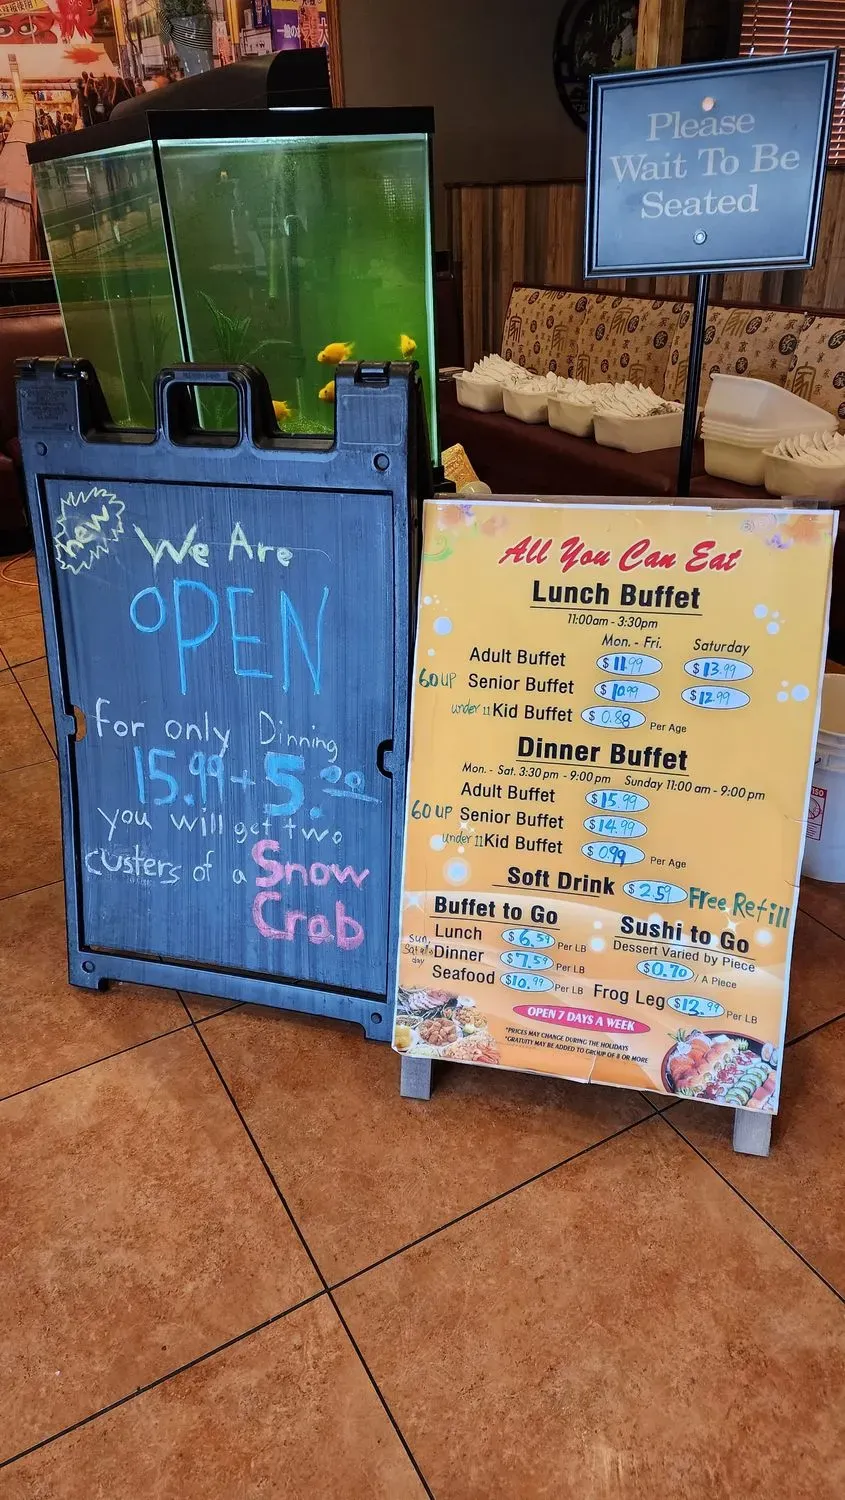 Please
Wait To Be
Seated
new
We Are
OPEN
for only Dinning
15.99 + 5.00
you will get two
custers of a Snow
Crab
All You Can Eat
Lunch Buffet
11:00am - 3:30pm
Mon. - Fri. Saturday
Adult Buffet $11.99 $13.99
60 UP Senior Buffet $10.99 $12.99
under 11 Kid Buffet $0.88 Per Age
Dinner Buffet
Mon. - Sat. 3:30 pm - 9:00 pm Sunday 11:00 am - 9:00 pm
Adult Buffet $15.99
60 UP Senior Buffet $14.99
under 11 Kid Buffet $0.99 Per Age
Soft Drink $2.59 Free Refill
Buffet to Go
Lunch $6.59 Per LB
Sun,
day
Dinner $7.59 Per LB
Seafood $10.99 Per LB
Sushi to Go
Dessert Varied by Piece
$0.70 / A Piece
Frog Leg $13.99 Per LB
OPEN 7 DAYS A WEEK
*PRICES MAY CHANGE DURING THE HOLIDAYS
*GRATUITY MAY BE ADDED TO GROUP OF 8 OR MORE